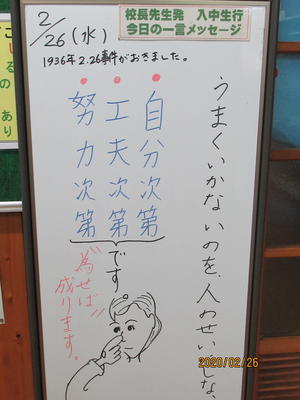 校長先生発 入中生行
今日の一言メッセージ
2/26(水)
1936年2.26事件がおきました。
うまくいかないのを、人のせいにしな、
自分次第
工夫次第
努力次第
です。
"為せば
成ります。"
2020/02/26